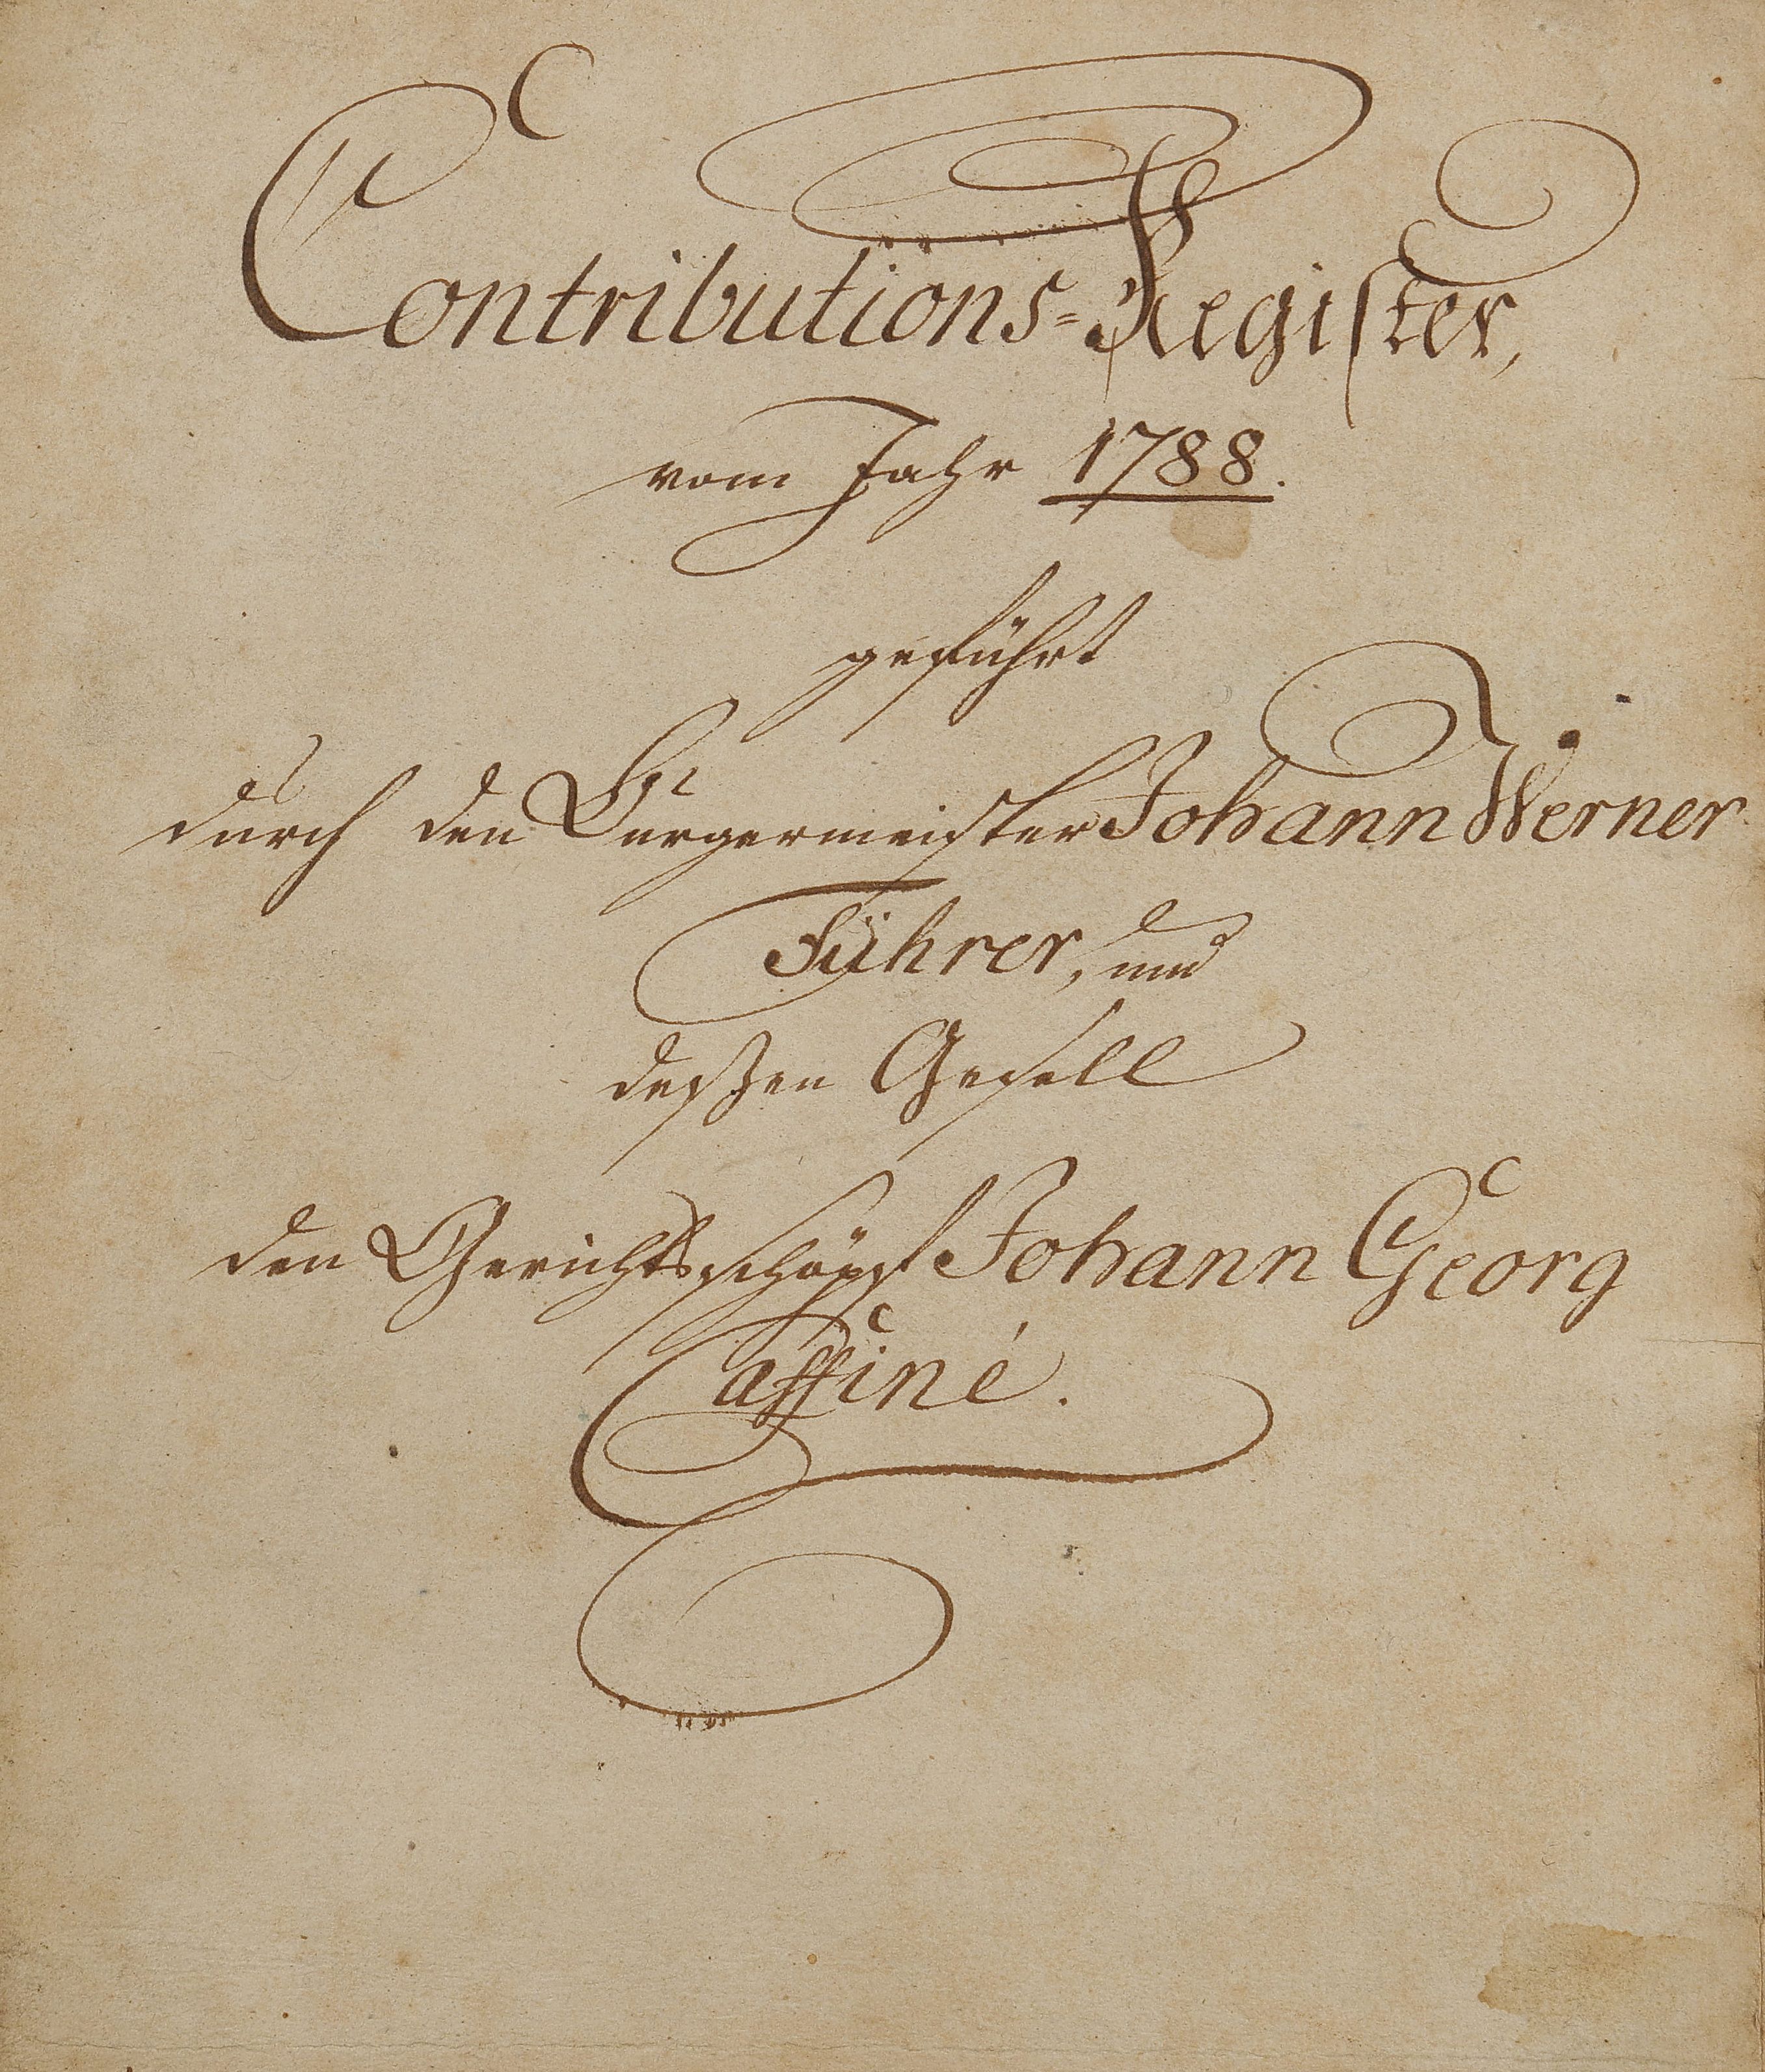 Contributions=Register,
vom Jahr 1788.
geführt
durch den Burgermeister Johann Werner
Führer, und
deßen Gesell
den Gerichtsschöpf Johann Georg
Caffiné.